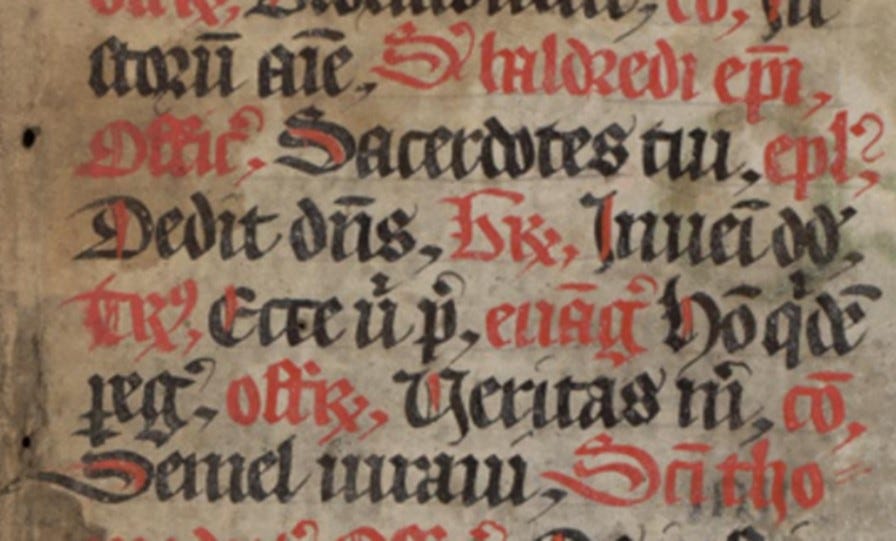 ctorū aīe, S baldredi ep̄i,
Offic̄, Sacerdotes tui, epl̄,
Dedit dn̄s, Gr̄, Inueī dd̄,
Tr̄, Ecce ū p̄, euāg̅ Hō q̇dē
peg̅, offr̄, Veritas m̄, cō,
Semel iuraui, Scī tho